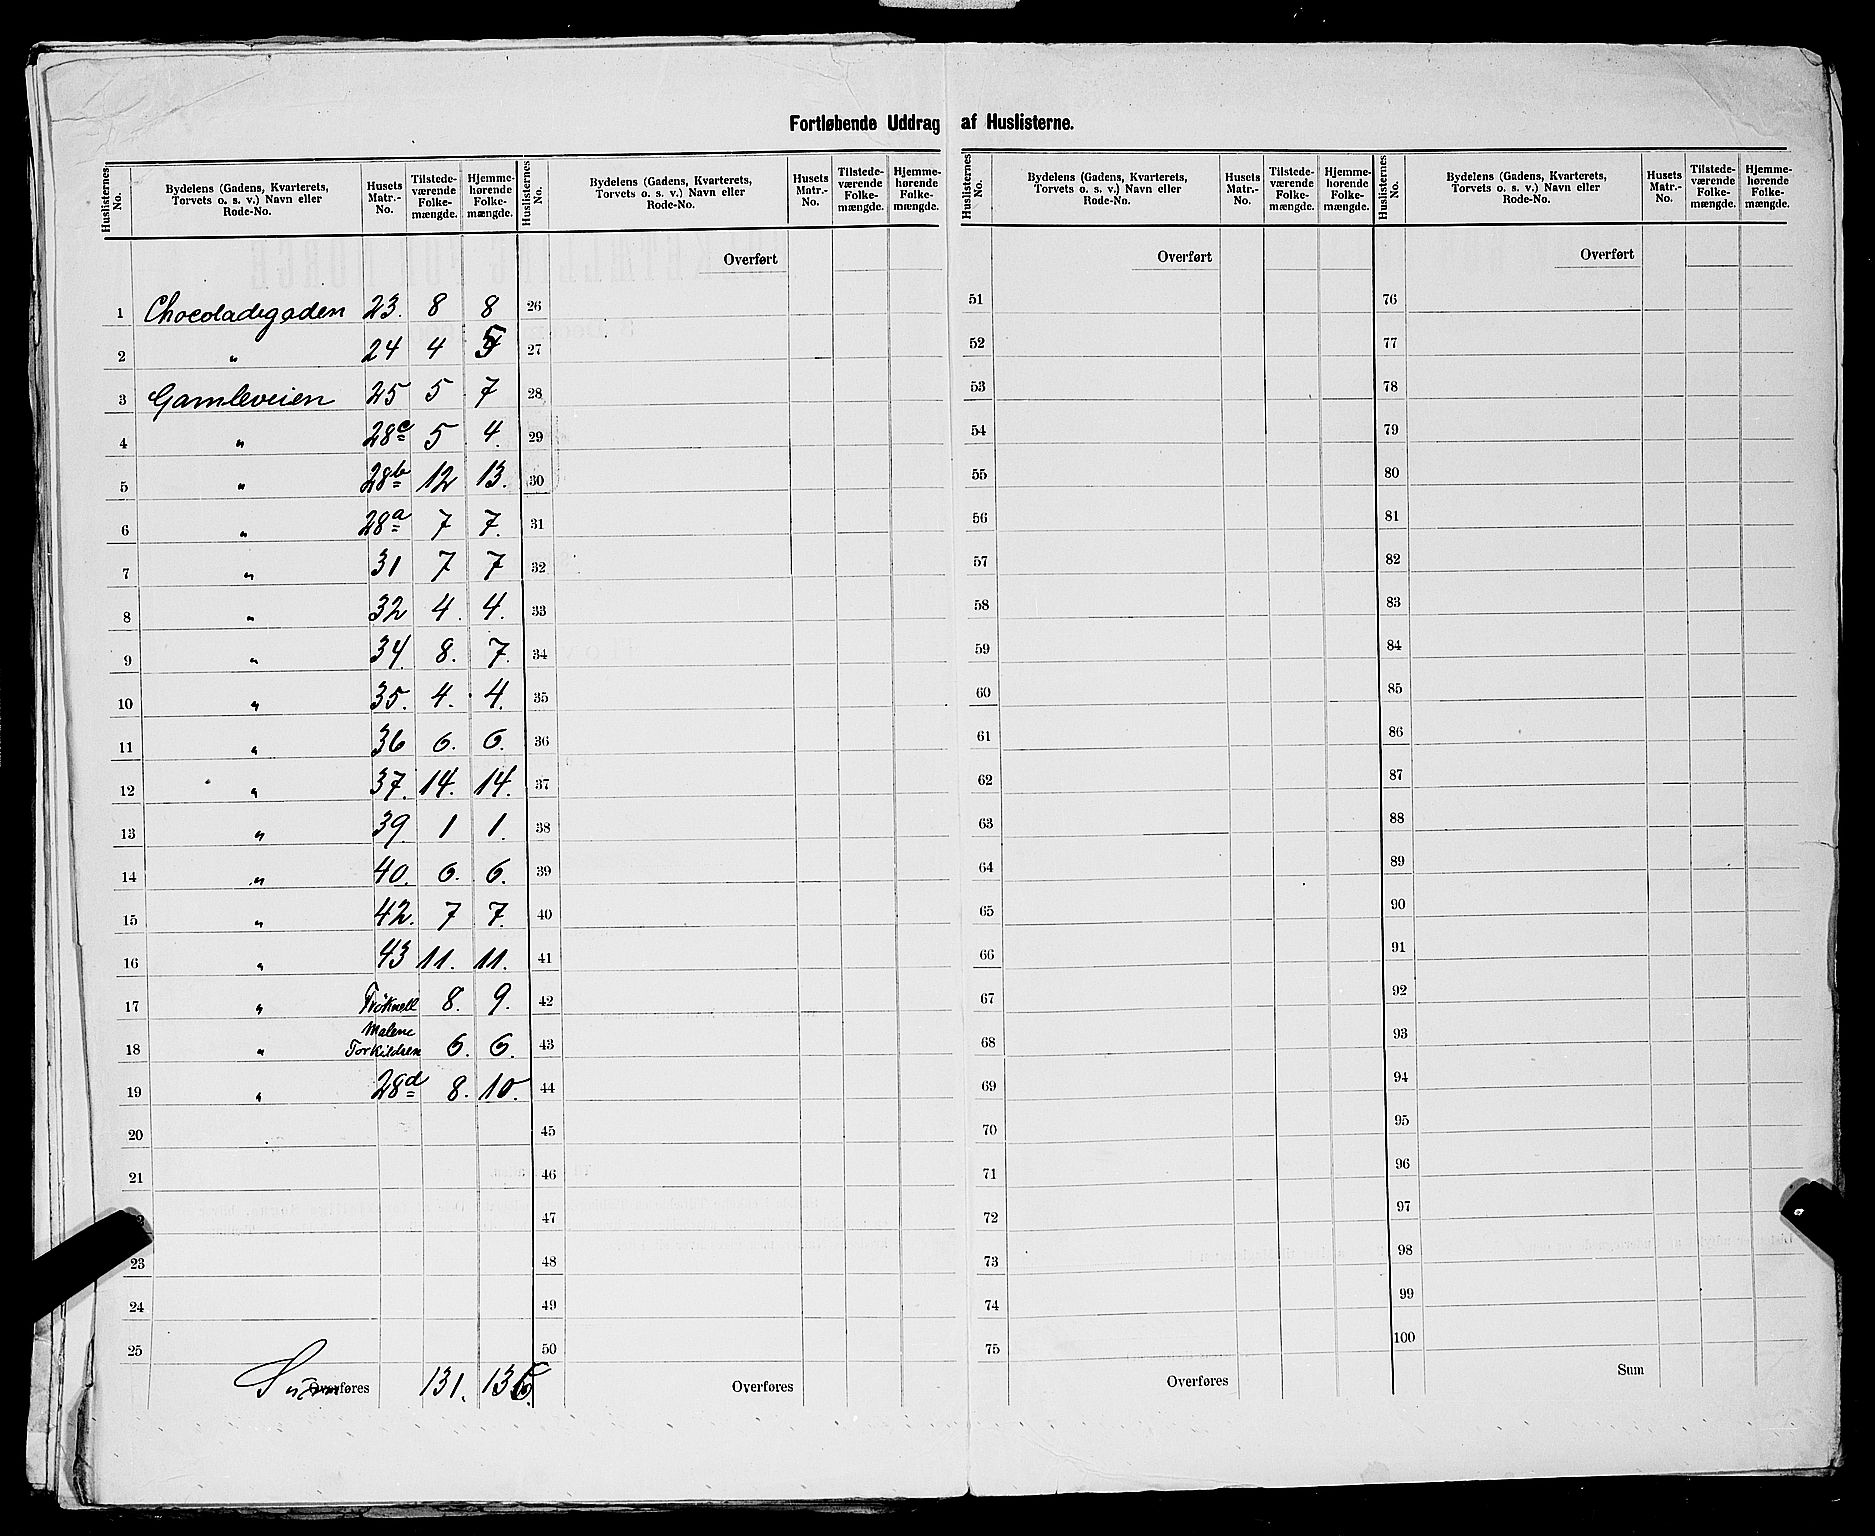 Fortløbende Uddrag af Huslisterne.
Huslisternes No. Bydelens (Gadens, Kvarterets, Torvets o. s. v.) Navn eller Rode-No. Husets Matr.-No. Tilstedeværende Folkemængde. Hjemmehørende Folkemængde.
1 Chocoladegaden 23. 8 8
2 " 24 4 5
3 Gamleveien 25 5 7
4 " 28c 5 4.
5 " 28b 12 13.
6 " 28a 7 7.
7 " 31 7 7
8 " 32 4. 4.
9 " 34 8. 7.
10 " 35. 4. 4.
11 " 36 6. 6.
12 " 37. 14. 14.
13 " 39. 1 1.
14 " 40. 6. 6.
15 " 42. 7 7.
16 " 43 11. 11.
17 " 8. 9.
18 " Malene Torkildsen 6. 6.
19 " 28d 8. 10.
20
21
23
24
25
Sum Overføres 131. 136.
Huslisternes No. Bydelens (Gadens, Kvarterets, Torvets o. s. v.) Navn eller Rode-No. Husets Matr.-No. Tilstedeværende Folkemængde. Hjemmehørende Folkemængde.
Overført
26
27
28
29
30
31
32
33
34
35
36
37
38
39
40
41
42
43
44
45
46
47
48
49
50
Overføres
Huslisternes No. Bydelens (Gadens, Kvarterets, Torvets o. s. v.) Navn eller Rode-No. Husets Matr.-No. Tilstedeværende Folkemængde. Hjemmehørende Folkemængde.
Overført
51
52
53
54
55
56
57
58
59
60
61
62
63
64
65
66
67
68
69
70
71
72
73
74
75
Overføres
Huslisternes No. Bydelens (Gadens, Kvarterets, Torvets o. s. v.) Navn eller Rode-No. Husets Matr.-No. Tilstedeværende Folkemængde. Hjemmehørende Folkemængde.
Overført
76
77
78
79
80
81
82
83
84
85
86
87
88
89
90
91
92
93
94
95
96
97
98
99
100
Sum